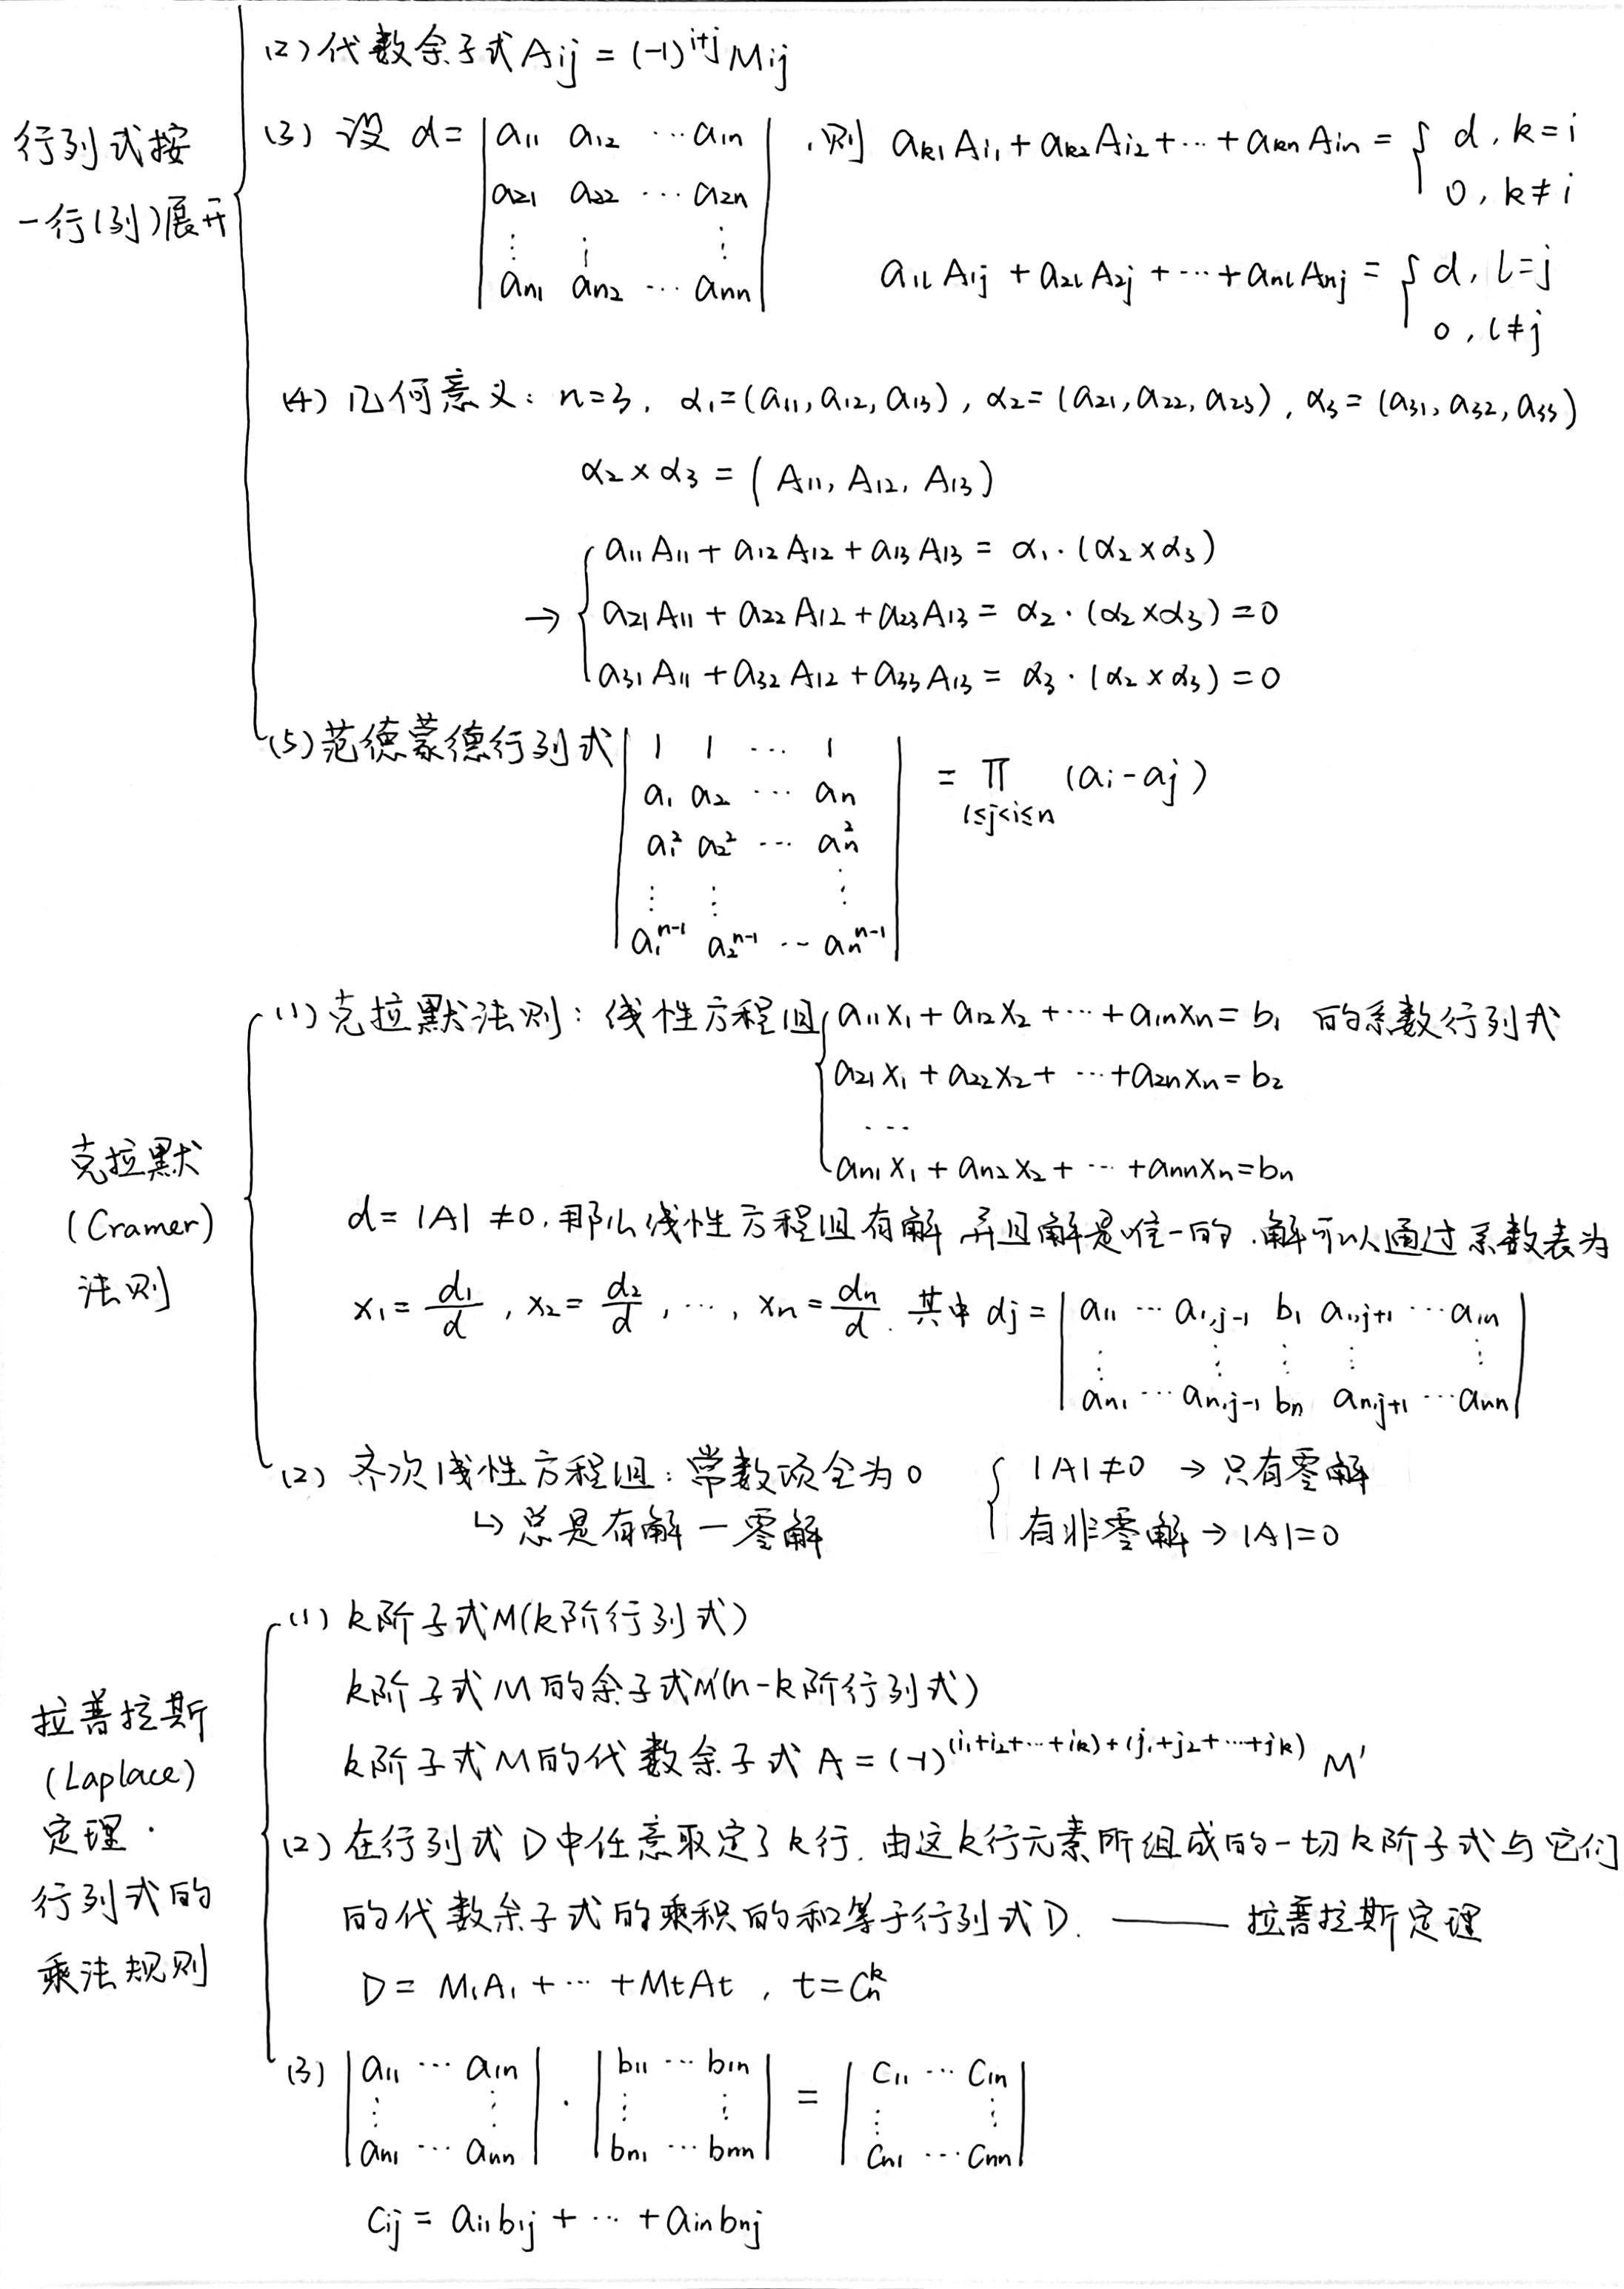 (2) 代数余子式 Aij = (-1)^{i+j} Mij
行列式按
一行(列)展开
(3) 设 d = | a11 a12 ⋯ a1n | , 则 ak1 Ai1 + ak2 Ai2 + ⋯ + akn Ain = { d , k = i
a21 a22 ⋯ a2n
0 , k ≠ i
⋮ ⋮ ⋮
an1 an2 ⋯ ann
a1l A1j + a2l A2j + ⋯ + anl Anj = { d , l = j
0 , l ≠ j
(4) 几何意义: n=3, α1=(a11, a12, a13), α2=(a21, a22, a23), α3=(a31, a32, a33)
α2 × α3 = (A11, A12, A13)
→ { a11 A11 + a12 A12 + a13 A13 = α1 · (α2 × α3)
a21 A11 + a22 A12 + a23 A13 = α2 · (α2 × α3) = 0
a31 A11 + a32 A12 + a33 A13 = α3 · (α2 × α3) = 0
(5) 范德蒙德行列式 | 1 1 ⋯ 1 | = ∏ (ai - aj)
1≤j<i≤n
a1 a2 ⋯ an
a1^2 a2^2 ⋯ an^2
⋮ ⋮ ⋮
a1^{n-1} a2^{n-1} ⋯ an^{n-1}
克拉默
(Cramer)
法则
(1) 克拉默法则: 线性方程组 { a11x1 + a12x2 + ⋯ + a1nxn = b1 的系数行列式
a21x1 + a22x2 + ⋯ + a2nxn = b2
⋯
an1x1 + an2x2 + ⋯ + annxn = bn
d = |A| ≠ 0, 那么线性方程组有解 并且解是唯一的, 解可以通过系数表为
x1 = d1/d , x2 = d2/d , ⋯ , xn = dn/d. 其中 dj = | a11 ⋯ a1,j-1 b1 a1,j+1 ⋯ a1n |
⋮ ⋮ ⋮ ⋮ ⋮
an1 ⋯ an,j-1 bn an,j+1 ⋯ ann
(2) 齐次线性方程组: 常数项全为0 { |A| ≠ 0 → 只有零解
↳ 总是有解 — 零解 有非零解 → |A| = 0
拉普拉斯
(Laplace)
定理 ·
行列式的
乘法规则
(1) k阶子式M(k阶行列式)
k阶子式M的余子式M'(n-k阶行列式)
k阶子式M的代数余子式 A = (-1)^{(i1+i2+⋯+ik)+(j1+j2+⋯+jk)} M'
(2) 在行列式D中任意取定了k行. 由这k行元素所组成的一切k阶子式与它们
的代数余子式的乘积的和等于行列式D. —— 拉普拉斯定理
D = M1A1 + ⋯ + MtAt , t = C_n^k
(3) | a11 ⋯ a1n | · | b11 ⋯ b1n | = | c11 ⋯ c1n |
⋮ ⋮ ⋮ ⋮ ⋮ ⋮
an1 ⋯ ann bn1 ⋯ bnn cn1 ⋯ cnn
cij = ai1b1j + ⋯ + ainbnj